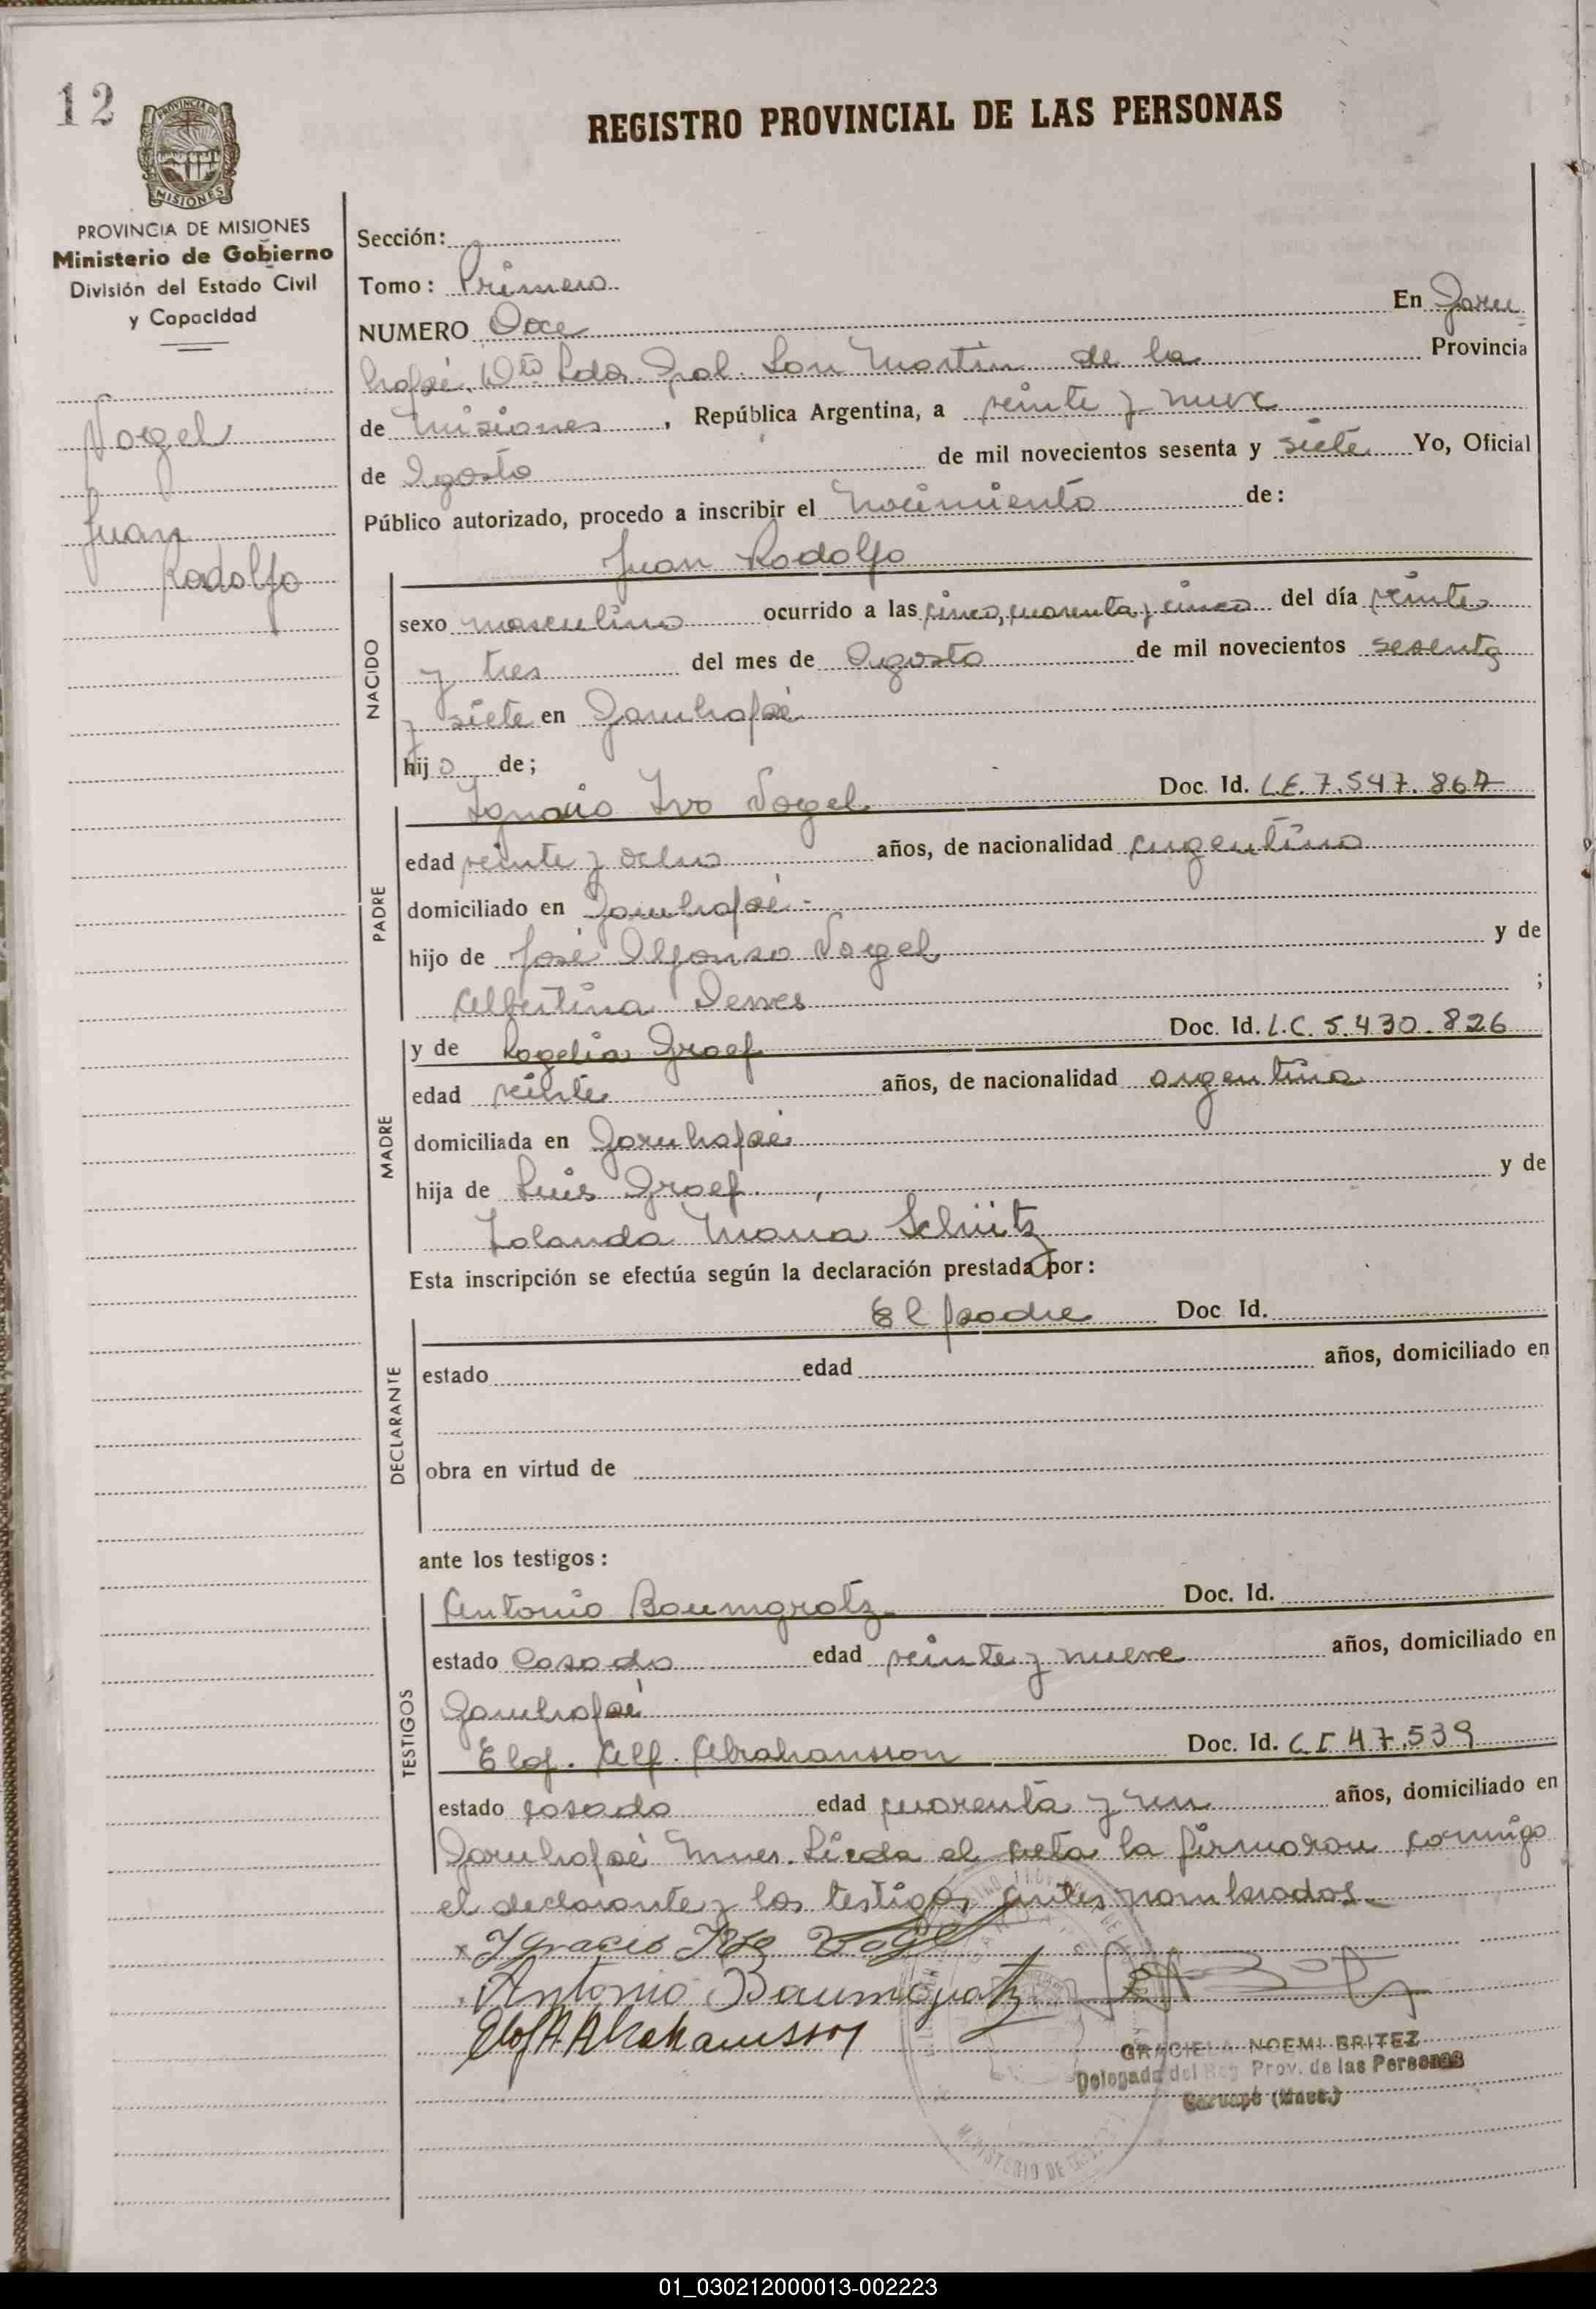 12
PROVINCIA DE
MISIONES
PROVINCIA DE MISIONES
Ministerio de Gobierno
División del Estado Civil
y Capacidad
Vogel
Juan
Rodolfo
REGISTRO PROVINCIAL DE LAS PERSONAS
Sección:
Tomo: Primero
NUMERO Doce En Garu
hapé, Dto Ldor. Gral. San Martin de la Provincia
de Misiones, República Argentina, a veinte y nueve
de Agosto de mil novecientos sesenta y siete Yo, Oficial
Público autorizado, procedo a inscribir el Nacimiento de:
Juan Rodolfo
NACIDO
sexo masculino ocurrido a las cinco, cuarenta y cinco del día veinte
y tres del mes de Agosto de mil novecientos sesenta
y siete en Garuhapé
hijo de;
PADRE
Ignacio Ivo Vogel Doc. Id. L.E. 7.547.867
edad veinte y ocho años, de nacionalidad argentino
domiciliado en Garuhapé
hijo de José Alfonso Vogel y de
Albertina ;
MADRE
y de Rogelia Graef Doc. Id. L.C. 5.430.826
edad veinte años, de nacionalidad argentina
domiciliada en Garuhapé
hija de Luis Graef y de
Iolanda Maria Schütz
Esta inscripción se efectúa según la declaración prestada por:
DECLARANTE
El padre Doc Id.
estado edad años, domiciliado en
obra en virtud de
ante los testigos:
TESTIGOS
Antonio Baumgratz Doc. Id.
estado Casado edad veinte y nueve años, domiciliado en
Garuhapé
Elof. Alf. Abrahansson Doc. Id. C I 47.539
estado casado edad cuarenta y un años, domiciliado en
Garuhapé Mnes. Lieda el acta la firmaron conmigo
el declarante y los testigos antes nombrados.
Ignacio Ivo Vogel
Antonio Baumgratz
Elof A Abrahamsson
GRACIELA NOEMI BRITEZ
Delegada del Reg Prov. de las Personas
Garuapé (Mnes.)
MINISTERIO DE
01_030212000013-002223